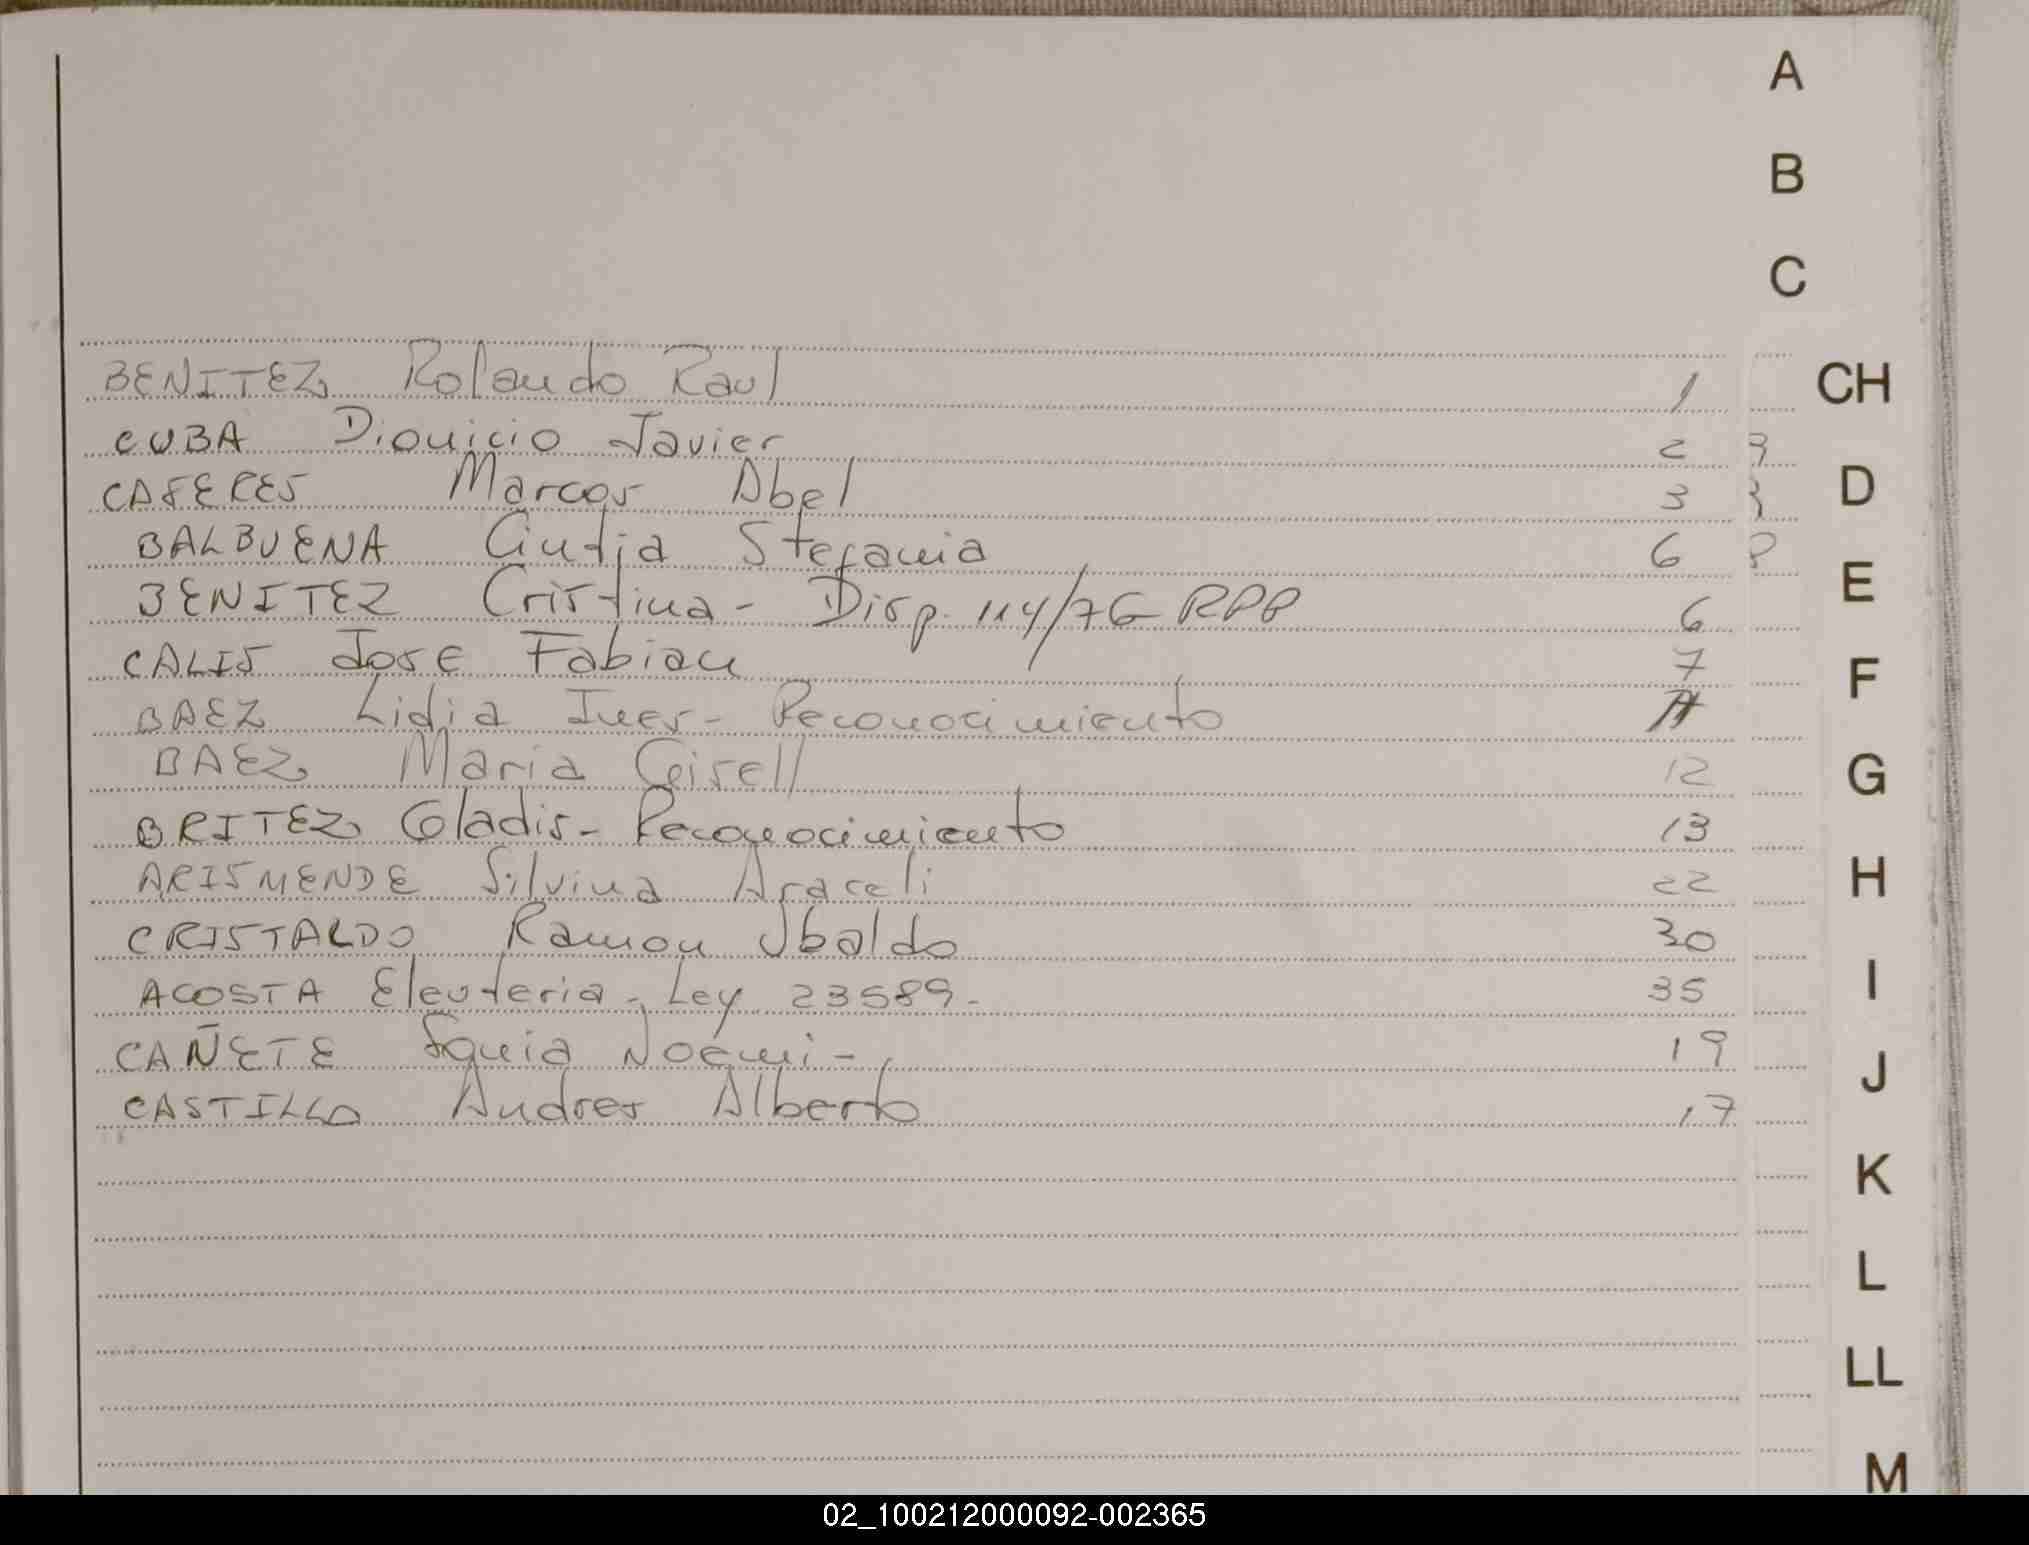 A
B
C
BENITEZ Rolando Raul 1 CH
CUBA Dionicio Javier 2
CAFERES Marcos Abel 3 D
BALBUENA Cintia Stefania 6
BENITEZ Cristina - Disp. 114/76 RPP 6 E
CALIS Jose Fabian 7 F
BAEZ Lidia Ines - Reconocimiento
BAEZ Maria Gisell 12 G
BRITEZ Gladis - Reconocimiento 13
ARISMENDE Silvina Araceli 22 H
CRISTALDO Ramon Ubaldo 30
ACOSTA Eleuteria - Ley 23589. 35 I
CAÑETE Sonia Noemi - 19 J
CASTILLO Andres Alberto 17
K
L
LL
M
02_100212000092-002365